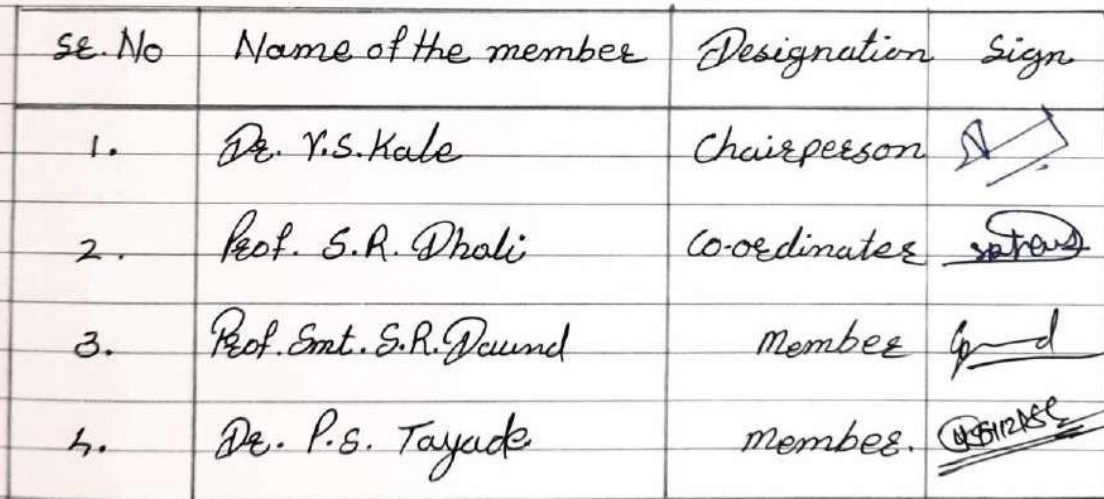 Sr. No Name of the member Designation Sign
1. Dr. V.S. Kale Chairperson
2. Prof. S.R. Dhali Co-ordinater
3. Prof. Smt. S.R. Daund Member
4. Dr. P.S. Tayade member.